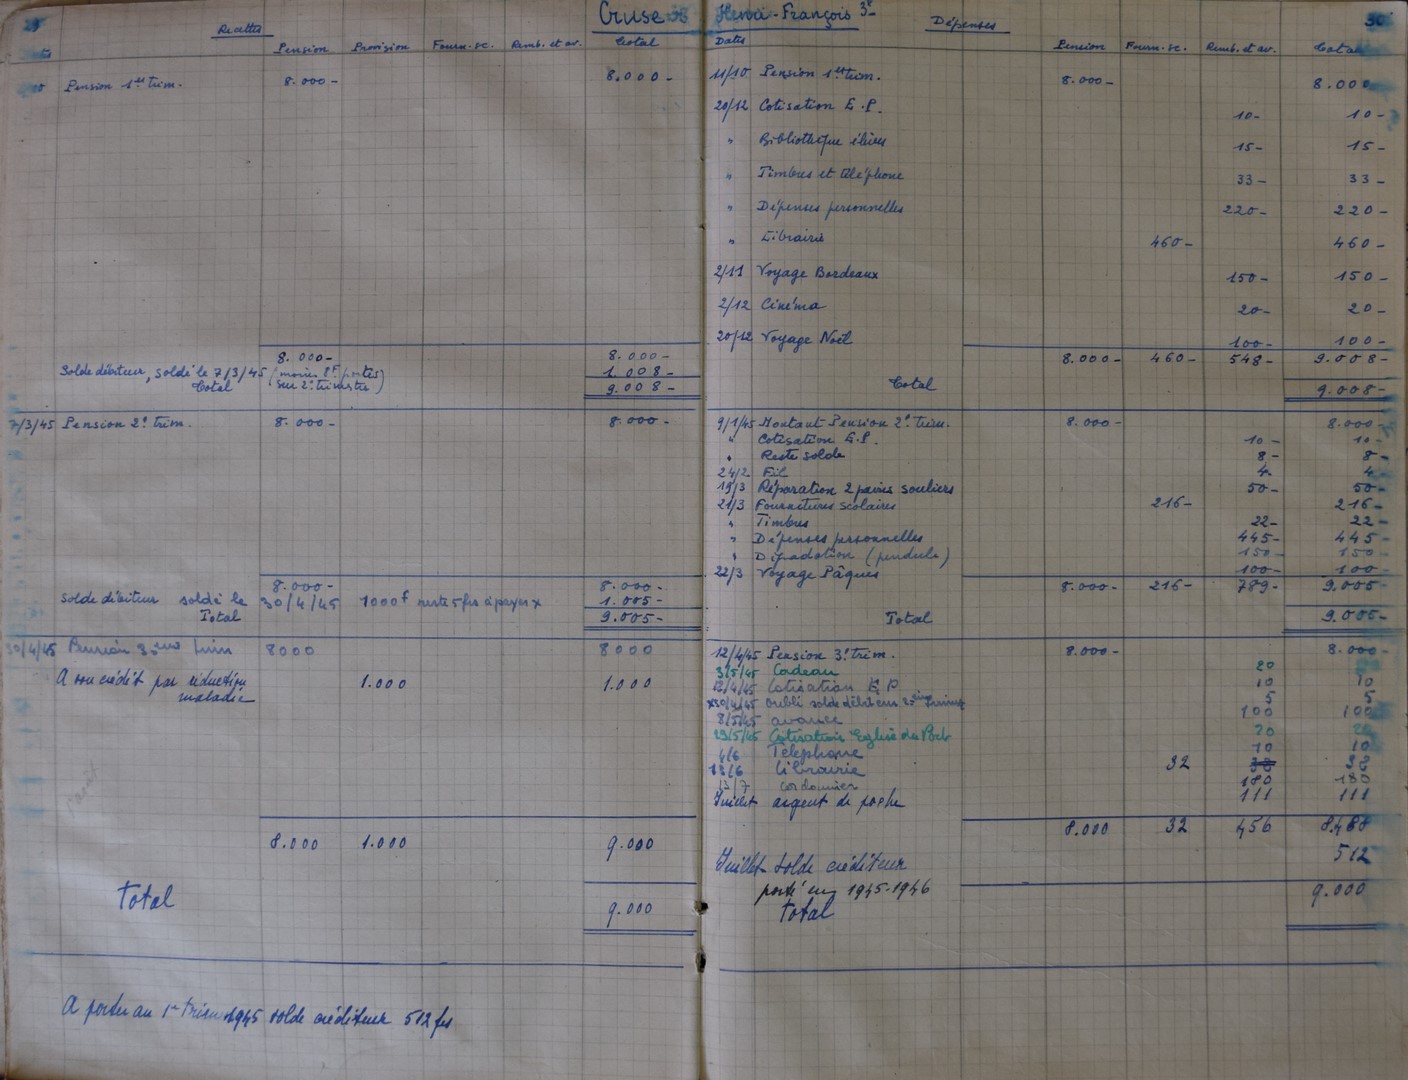 29
Cruse
Recettes
Pension Provision Fourn. sc. Remb. et av. Total
Pension 1er trim. 8.000- 8.000-
8.000- 8.000-
Solde débiteur, soldé le 7/3/45 (moins 8F portés 1.008-
Total sur 2e trimestre) 9.008-
7/3/45 Pension 2e trim. 8.000- 8.000-
8.000- 8.000-
Solde débiteur soldé le 30/4/45 1000f reste 5frs à payer x 1.005-
Total 9.005-
30/4/45 Pension 3ème trim 8000 8000
A son crédit par réduction 1.000 1.000
maladie
8.000 1.000 9.000
Total 9.000
A porter au 1er Trim 1945 solde créditeur 512 frs
Henri-François 3e
30
Dépenses
Dates Pension Fourn. sc. Remb. et av. Total
11/10 Pension 1er trim. 8.000- 8.000
20/12 Cotisation E.P. 10- 10-
" Bibliothèque élèves 15- 15-
" Timbres et téléphone 33- 33-
" Dépenses personnelles 220- 220-
" Librairie 460- 460-
2/11 Voyage Bordeaux 150- 150-
2/12 Cinéma 20- 20-
20/12 Voyage Noël 100- 100-
8.000- 460- 548- 9.008-
Total 9.008-
9/1/45 Montant Pension 2e trim. 8.000- 8.000-
" Cotisation E.P. 10- 10-
" Reste solde 8- 8-
24/2 Fil 4- 4-
19/3 Réparation 2 paires souliers 50- 50-
21/3 Fournitures scolaires 216- 216-
" Timbres 22- 22-
" Dépenses personnelles 445- 445-
" Dégradation (pendule) 150- 150-
22/3 Voyage Pâques 100- 100-
8.000- 216- 789- 9.005-
Total 9.005-
12/4/45 Pension 3e trim. 8.000- 8.000-
3/5/45 Cadeau 20
12/4/45 Cotisation E P 10 10
x30/4/45 oubli solde débiteur 2ème trim 5 5
8/5/45 avance 100 100
29/5/45 Cotisation Eglise du Port 20
4/6 Téléphone 10 10
13/6 Librairie 32
13/7 cordonnier 180 180
Juillet argent de poche 111 111
8.000 32 456 8.488
Juillet solde créditeur 512
porté en 1945-1946 9.000
Total